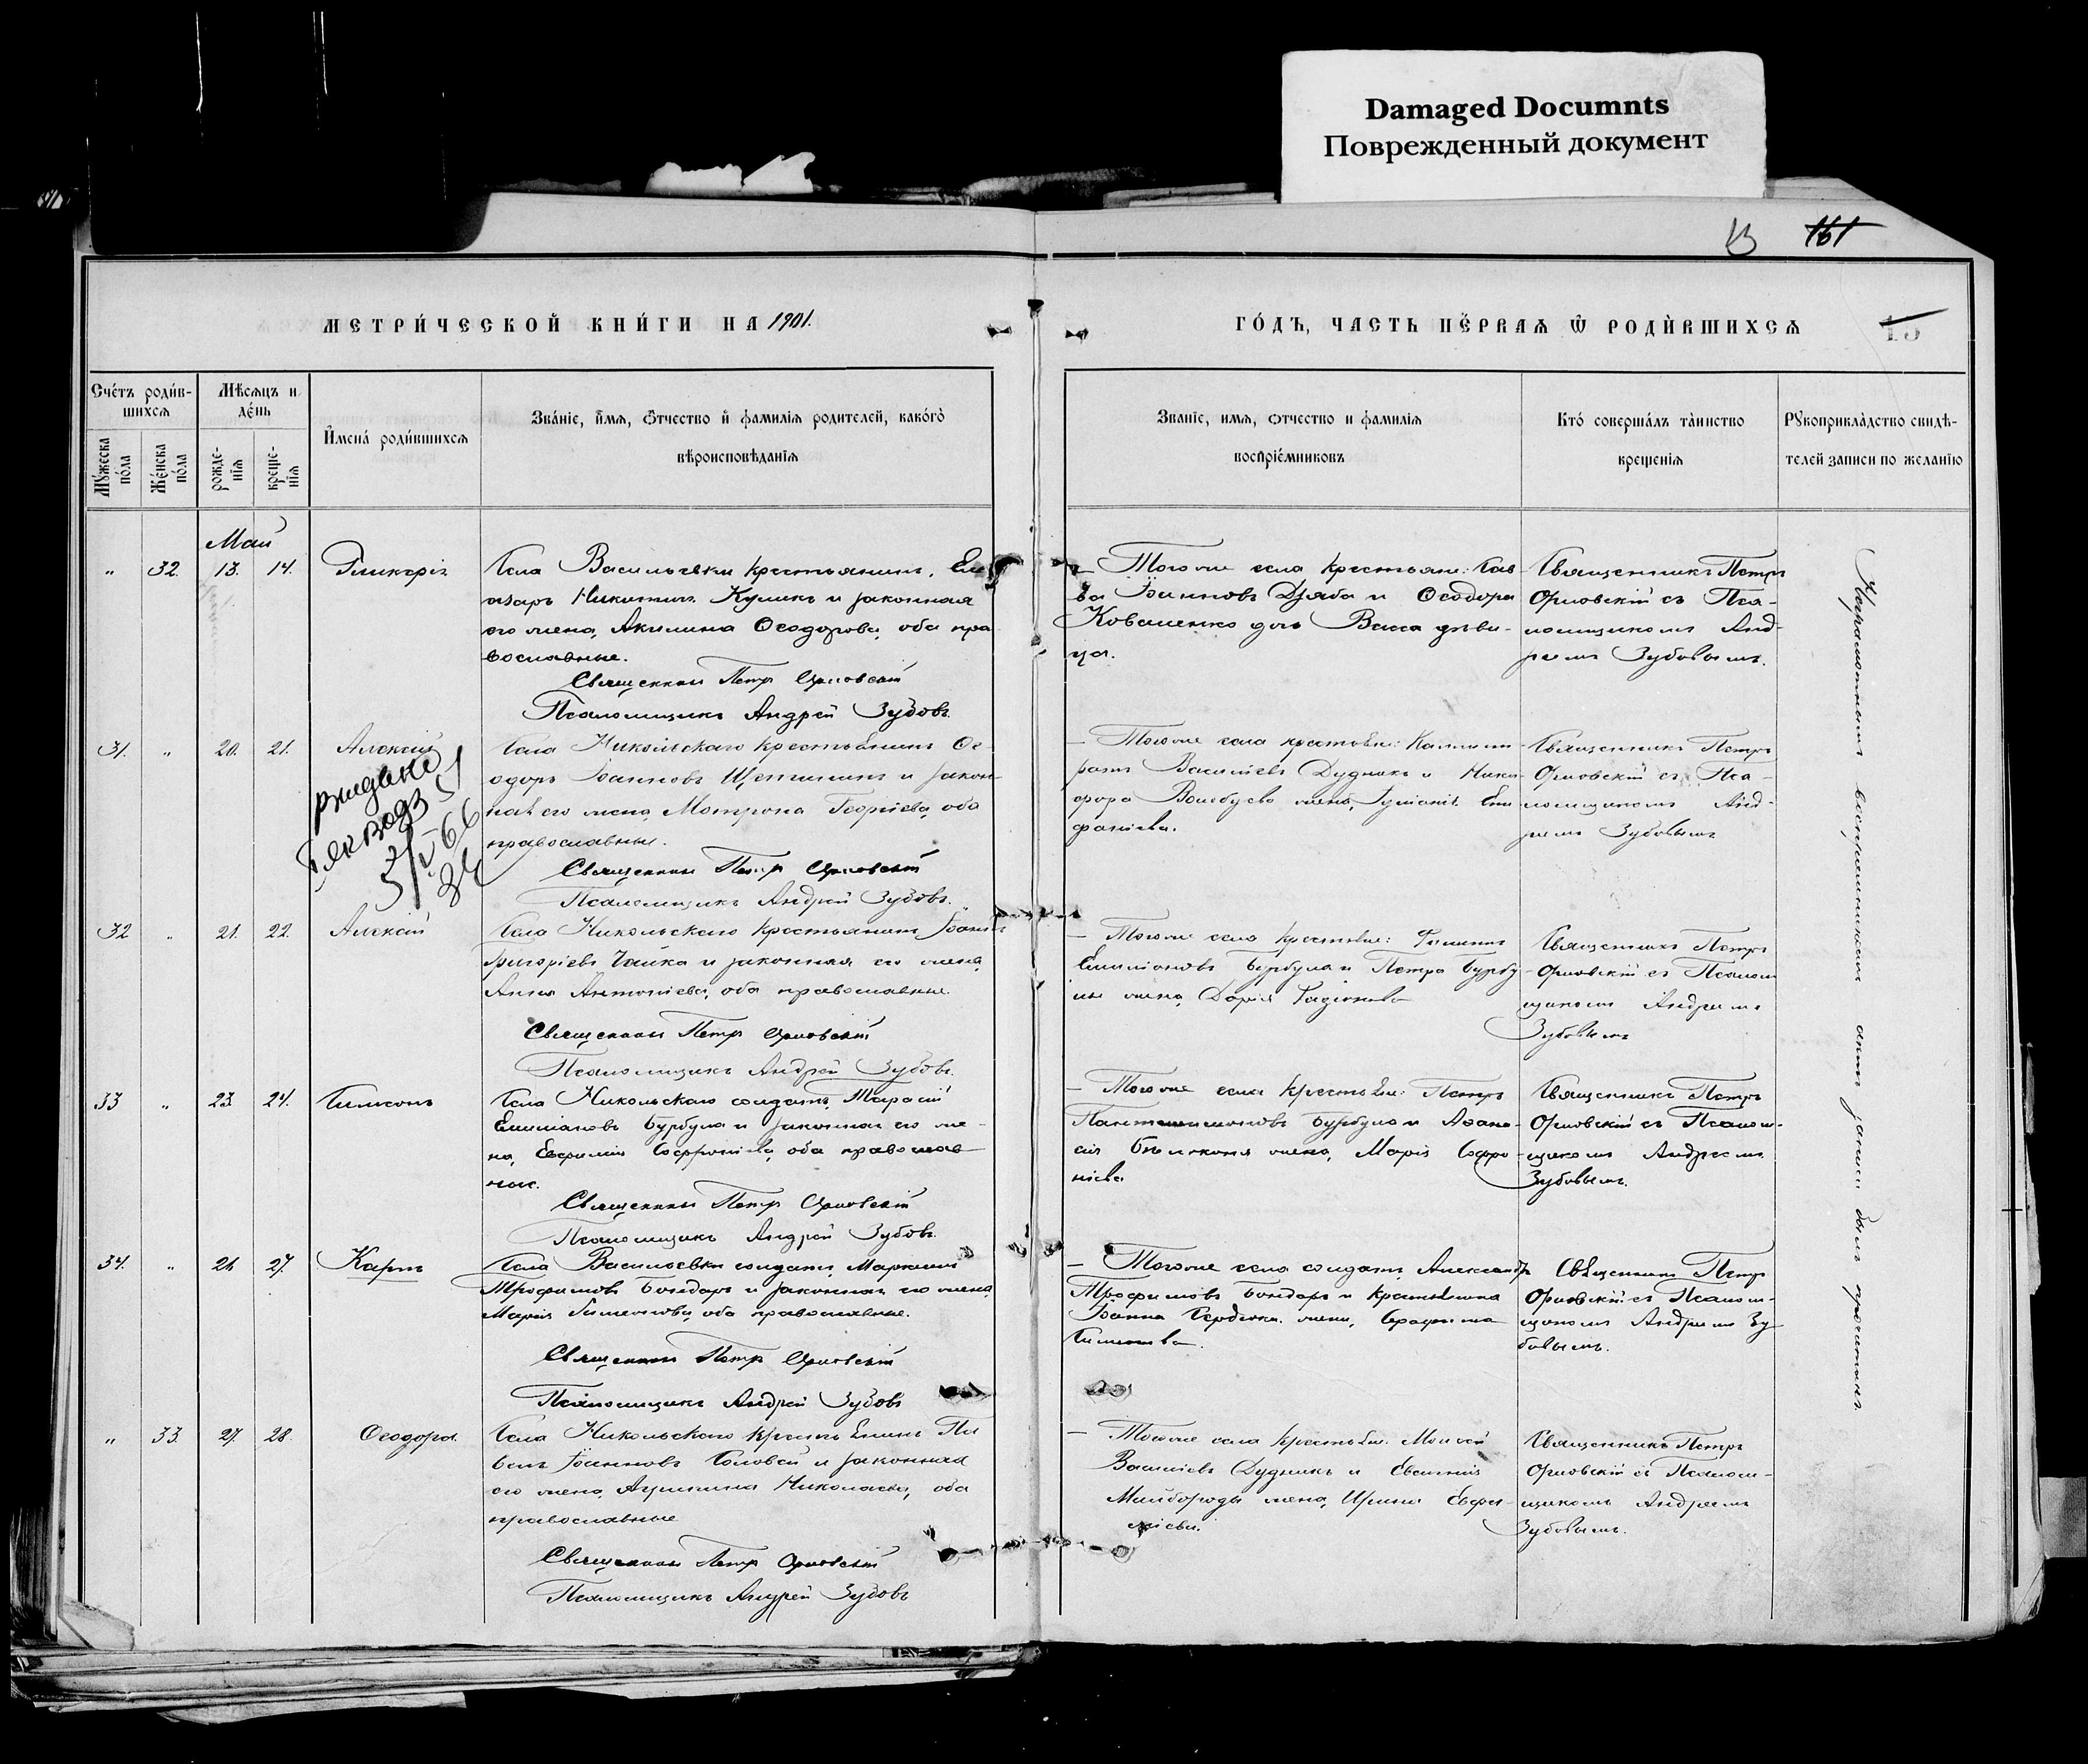 Damaged Documnts
Поврежденный документ
13 161
МЕТРИ́ЧЕСКОЙ КНИ́ГИ НА 1901.
ГО́ДЪ, ЧАСТЬ ПЕ́РВАѦ Ѿ РОДИ́ВШИХСѦ
15
Сче́тъ роди́в-
шихсѧ
Мꙋ́жеска по́ла
Же́нска по́ла
Мѣ́сѧцъ и
де́нь
рожде-
нїѧ
креще-
нїѧ
И҆мена̀ роди́вшихсѧ
Зва́нїе, и҆́мѧ, ѻ҆́тчество и҆ фамилїѧ родителей, како́гѡ
вѣроисповѣ́данїѧ
Званїе, имѧ, отчество и фамилїѧ
воспрїе́мниковъ
Кто̀ соверша́лъ та̀инство
крещенїѧ
Рꙋкоприкла̀дство свидѣ-
телей записи по желанїю
Май
" 32. 13. 14. Гликерія
Села Васильевки крестьянинъ, Еле
азаръ Никитинъ Куликъ и законная
его жена, Акилина Ѳеодорова, оба пра
вославные.
Священникъ Петръ Орловскій
Псаломщикъ Андрей Зубовъ.
Тогоже села крестьяне: Сав
ва Іоанновъ Дзяба и Ѳеодора
Коваленко дочь Васса дѣви-
ца.
Священникъ Петръ
Орловскій съ Пса-
ломщикомъ Анд-
реемъ Зубовымъ.
31. " 20. 21. Алексій
5/V-66
Села Никольскаго крестьянинъ Ѳе-
одоръ Іоанновъ Щетининъ и закон-
ная его жена, Матрона Георгіева, оба
православные.
Священникъ Петръ Орловскій
Псаломщикъ Андрей Зубовъ.
Тогоже села крестьяне:
Василіевъ Дудникъ и Ники-
фора жена, Епи
фаніева.
Священникъ Петръ
Орловскій съ Пса-
ломщикомъ Анд-
реемъ Зубовымъ
32 " 21. 22. Алексій
Села Никольскаго крестьянинъ Іоаннъ
Григоріевъ Чайка и законная его жена,
Анна Антоніева, оба православные.
Священникъ Петръ Орловскій
Псаломщикъ Андрей Зубовъ.
Тогоже села крестьяне: Филиппъ
Емиліановъ Бурбула и Петра Бурбу-
лы жена, Дарія
Священникъ Петръ
Орловскій съ Псалом
щикомъ Андреемъ
Зубовымъ
33 " 23. 24. Самсонъ
Села Никольскаго солдатъ, Тарасій
Емиліановъ Бурбула и законная его же-
на, Евфимія Софроніева, оба православ
ные.
Священникъ Петръ Орловскій
Псаломщикъ Андрей Зубовъ.
Тогоже села крестьяне: Петръ
Пантелеимоновъ Бурбула и Аѳана-
сія жена, Марія Софро-
ніева
Священникъ Петръ
Орловскій съ Псалом-
щикомъ Андреемъ
Зубовымъ.
34. " 26 27. Карпъ
Села Васильевки солдатъ,
Трофимовъ Бондарь и законная его жена,
Марія Филиппова, оба православные.
Священникъ Петръ Орловскій
Псаломщикъ Андрей Зубовъ
Тогоже села солдатъ, Александръ
Трофимовъ Бондарь и крестьянина
Іоанна жена, Серафима
Священникъ Петръ
Орловскій съ Псалом-
щикомъ Андреемъ Зу
бовымъ.
" 33. 27. 28. Ѳеодора.
Села Никольскаго крестьянинъ Па
велъ Іоанновъ Соловей и законная
его жена, Акилина Николаева, оба
православные
Священникъ Петръ Орловскій
Псаломщикъ Андрей Зубовъ
Тогоже села крестьяне: Моисей
Василіевъ Дудникъ и Евгенія
Майбороды жена, Ирина Евфи-
міева.
Священникъ Петръ
Орловскій съ Псалом-
щикомъ Андреемъ
Зубовымъ.
Неграмотнымъ воспріемникамъ актъ записи былъ прочитанъ.